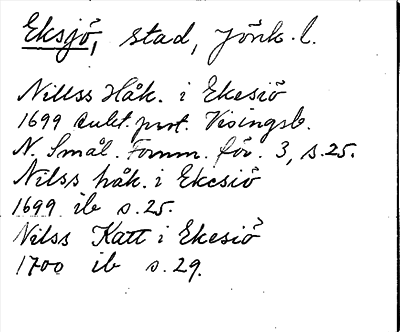 Eksjö, stad, Jönk. l.
Nillss Håk. i Ekesiö
1699 Aukt. prot. Visingsb.
N. Smål. Fornm. för. 3, s.25.
Nilss håk. i Ekesiö
1699 ib s.25.
Nilss Katt i Ekesiö
1700 ib s.29.